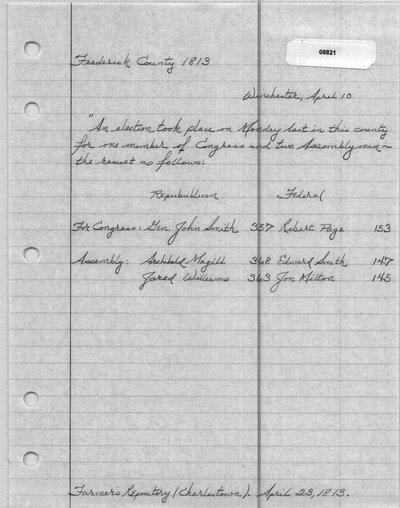 08821
Frederick County 1813
Winchester, April 10
"An election took place on Monday last in this county
for one member of Congress and two Assemblymen -
the result as follows:
Republican Federal
For Congress: Gen. John Smith 357 Robert Page 153
Assembly: Archibald Magill 368 Edward Smith 147
Jared Williams 363 Jon Milton 145
Farmer's Repository (Charlestown). April 23, 1813.